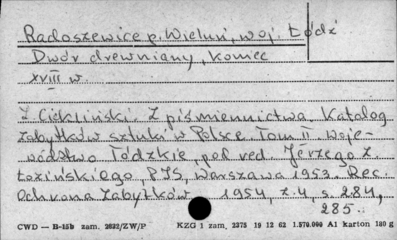 Radoszewice p. Wieluń, woj. Łódź
Dwór drewniany, koniec
XVIII w.
Z. Ciekliński. Z piśmiennictwa. Katalog
zabytków sztuki w Polsce. Tom II woje-
wództwo Łódzkie, pod red. Jerzego Z.
Łozińskiego. PIS, Warszawa 1953. Rec.
Ochrona Zabytków 1954, z. 4, s. 284,
285..
CWD — B-15b zam. 2822/ZW/P KZG 1 zam. 2375 19 12 62 1.570.000 A1 karton 180 g